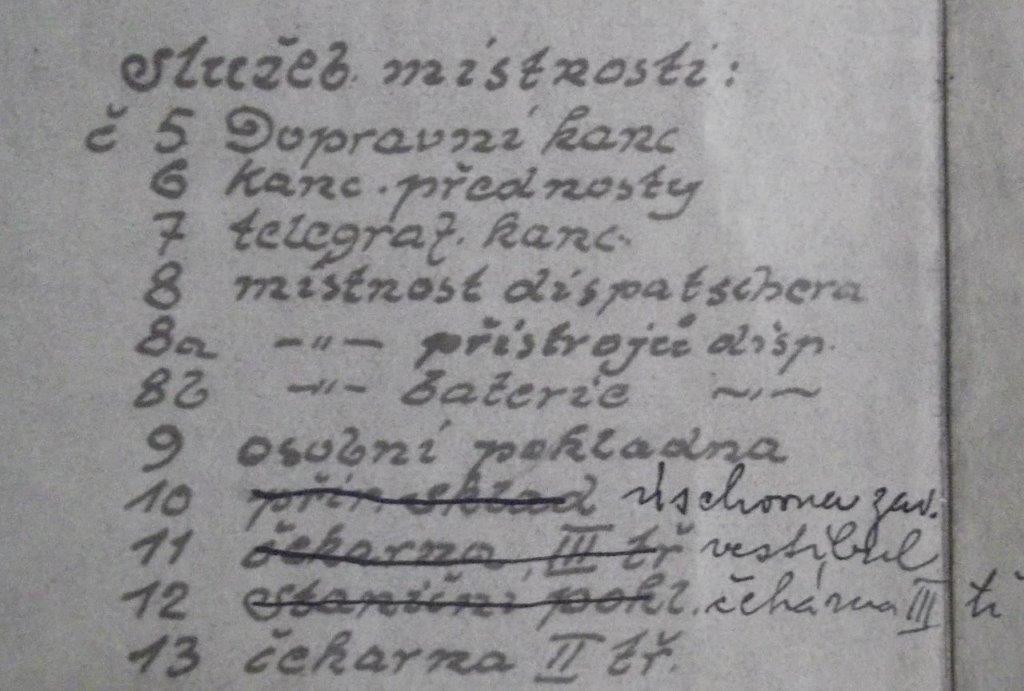 Služeb. místnosti:
č 5 Dopravní kanc
6 kanc. přednosty
7 telegraf. kanc.
8 místnost dispatschera
8a -"- přístrojů disp.
8b -"- baterie -"-
9 osobní pokladna
10 přír. sklad úschovna zav.
11 čekarna III tř vestibul
12 staniční pokl. čekárna III tř
13 čekarna II tř.